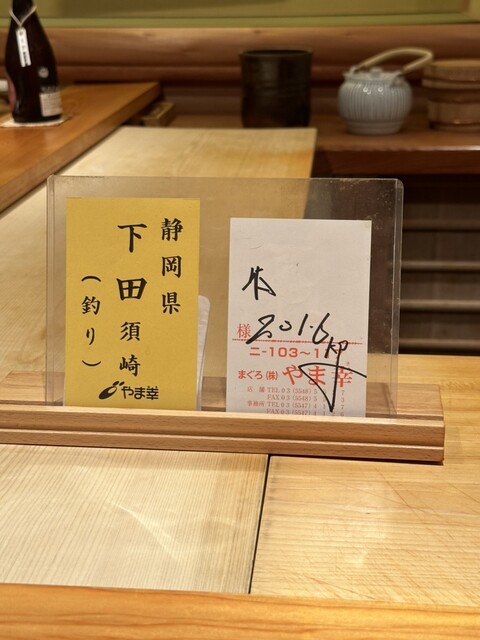 静岡県
下田須崎
(釣り)
やま幸
様
201.6kg
ニ-103~1
まぐろ(株)やま幸
店舗 TEL 03 (5548)
FAX 03 (5548)
事務所 TEL 03 (5547)
FAX 03 (5547)